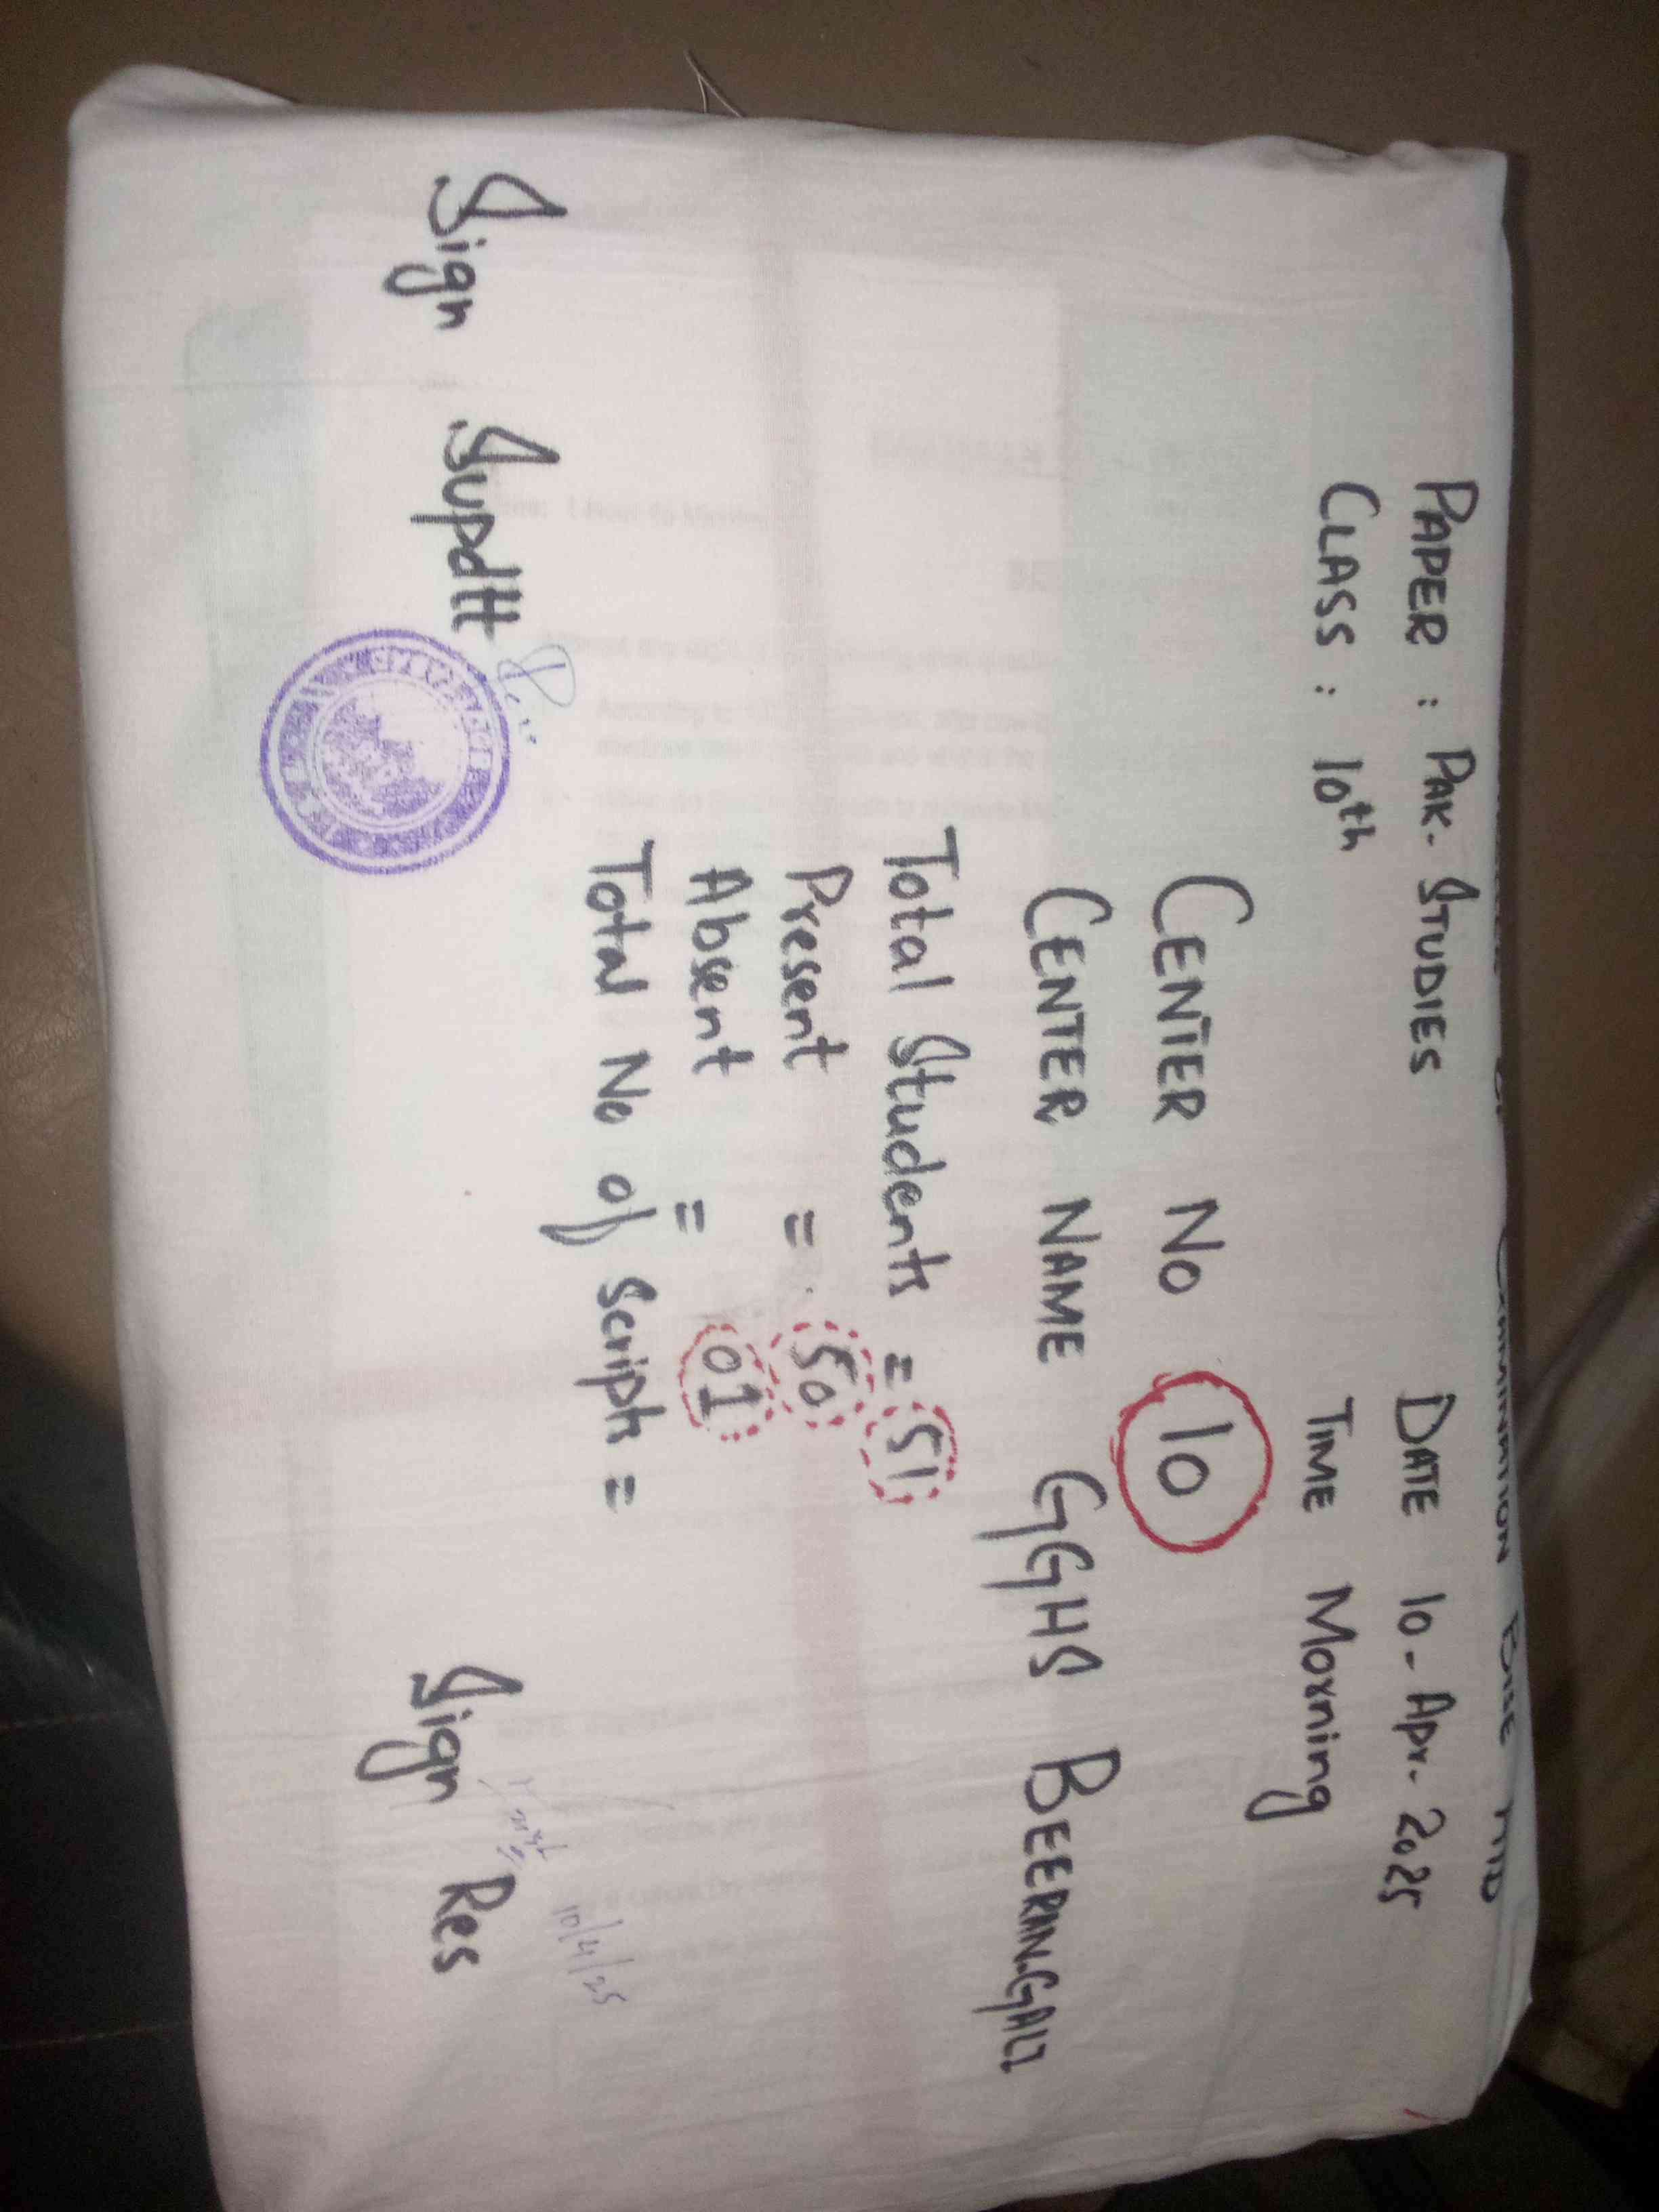 EXAMINATION BISE
PAPER : PAK. STUDIES DATE 10 - Apr. 2025
CLASS : 10th TIME Morning
CENTER NO 10
CENTER NAME GGHS BEERAN.GALI
Total Students = 51
Present = 50
Absent = 01
Total No of scripts =
10/4/25
Sign Supdtt Sign Res